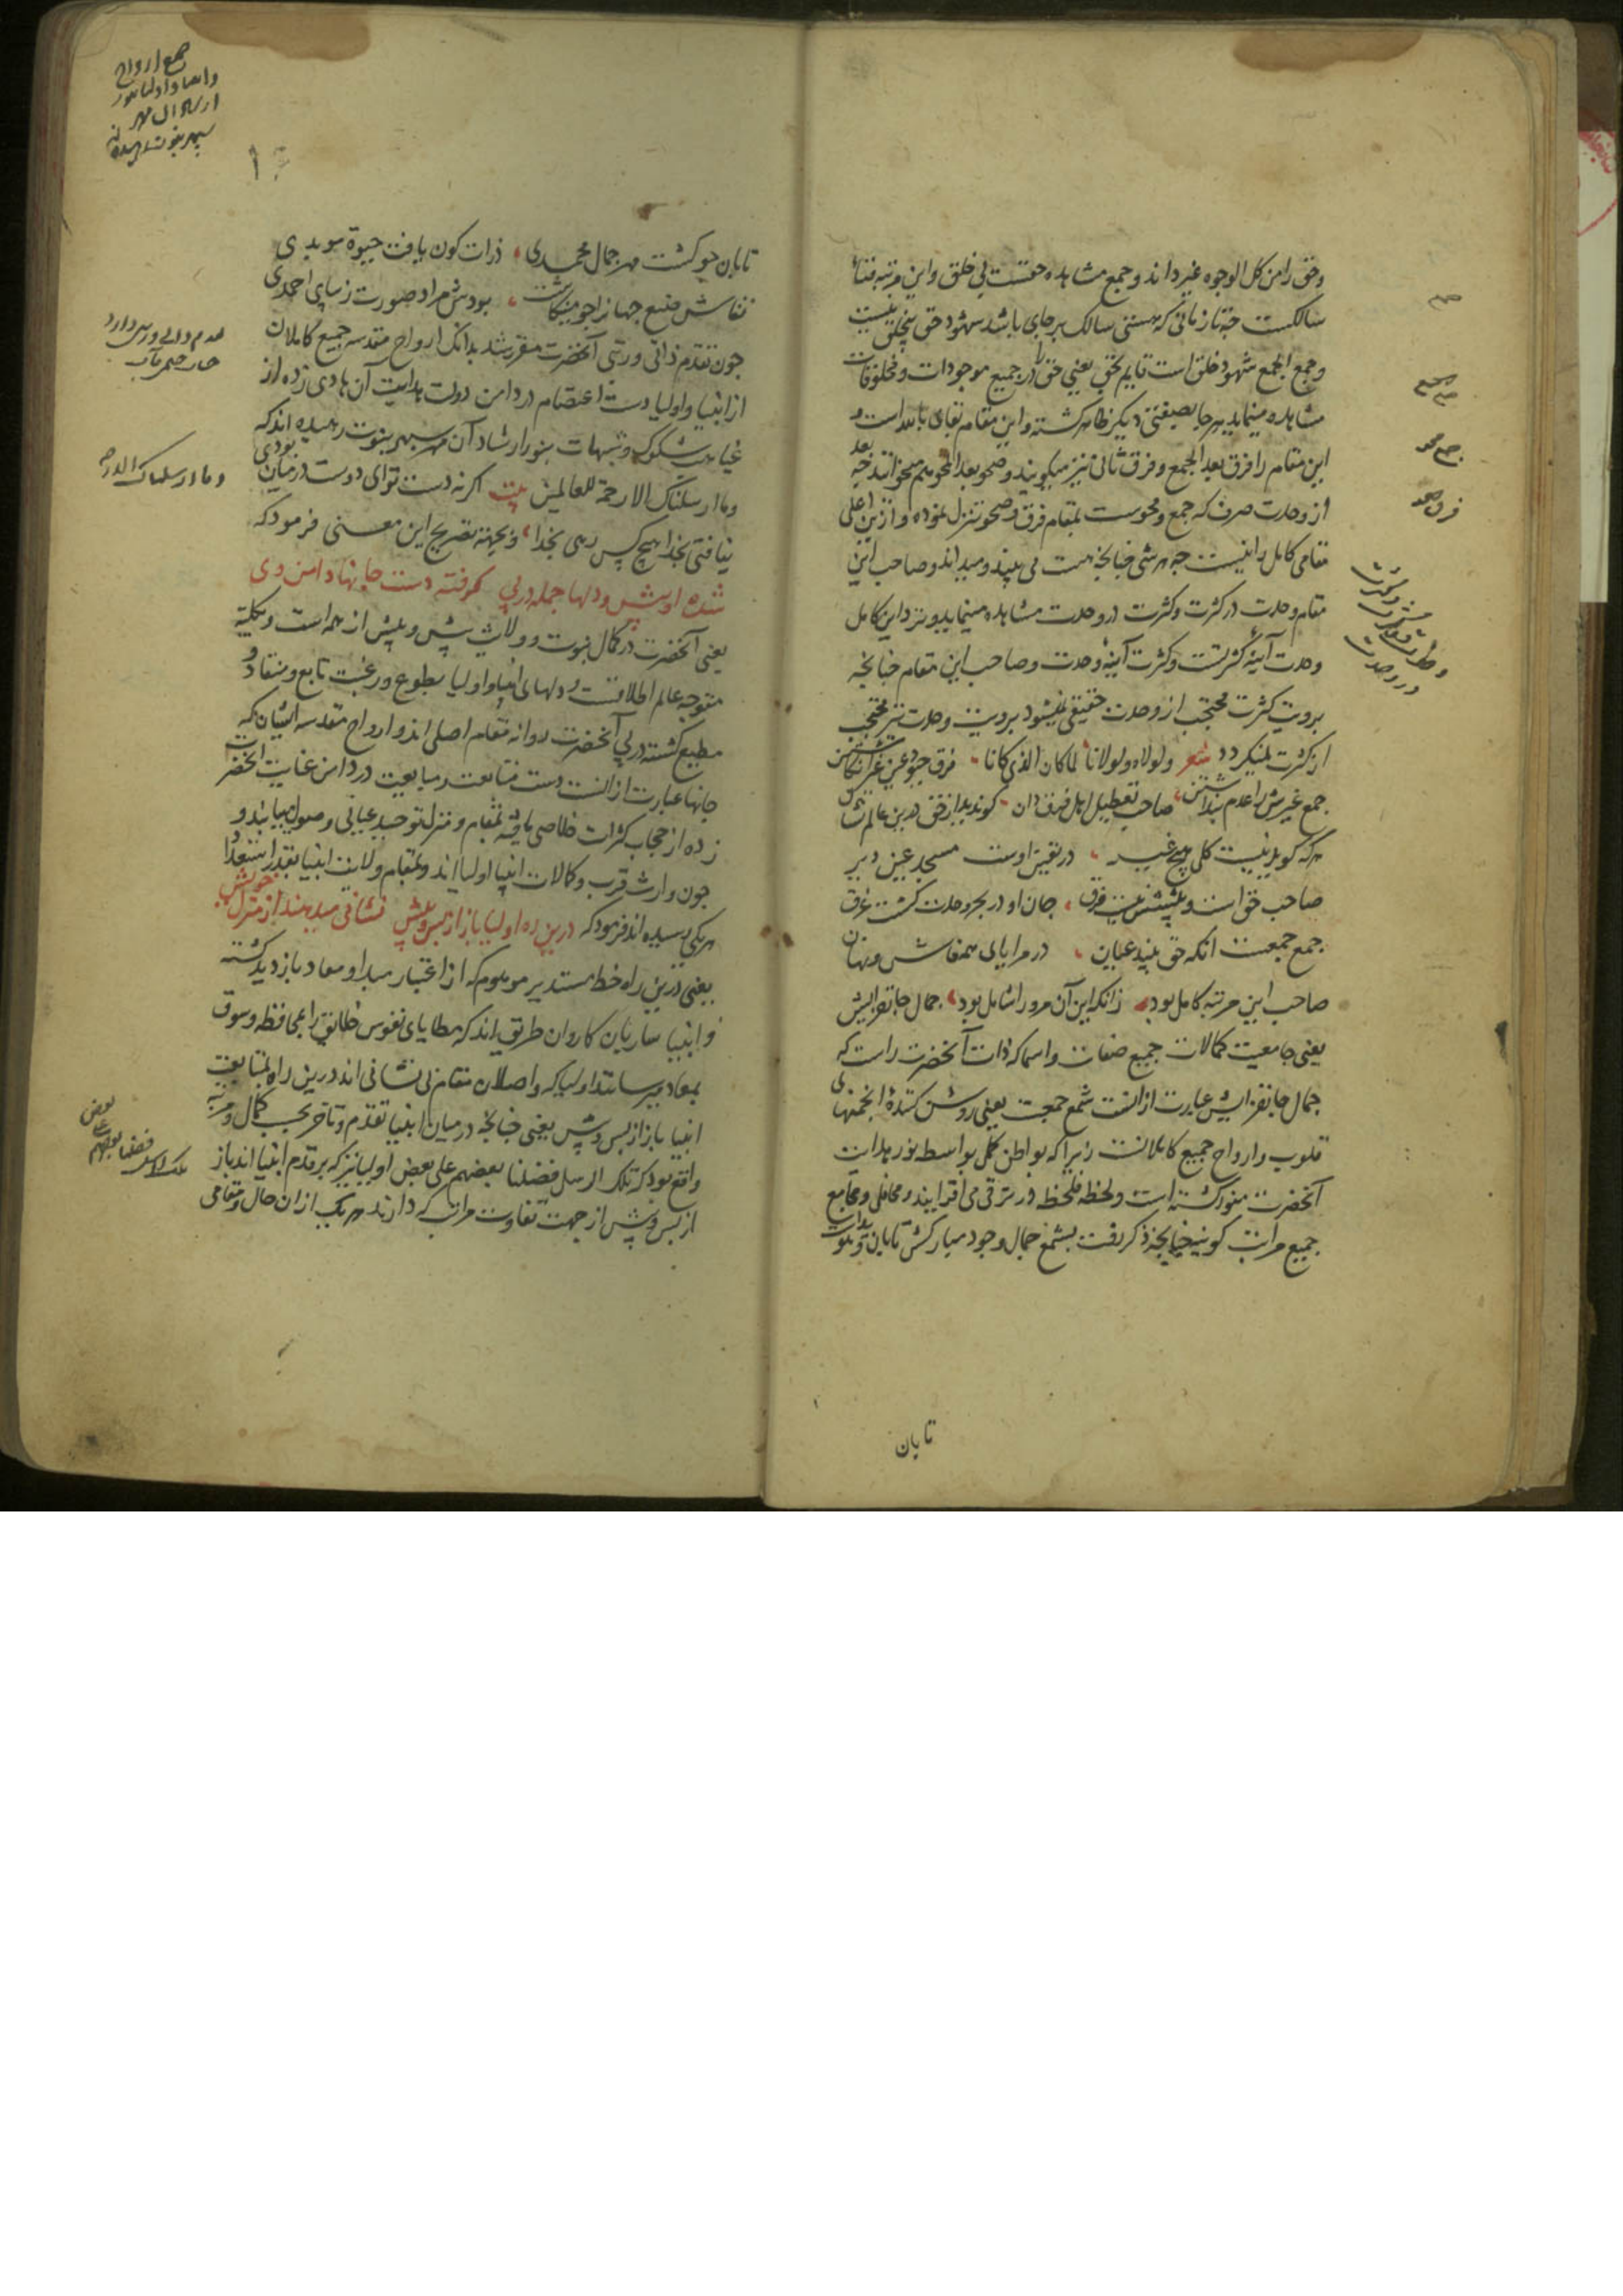 وحق را من کل الوجوه غیر داند و جمع مشاهده حقست بی خلق و این مرتبه فناء
سالکست چه تا زمانی که هستی سالک بر جای باشد شهود حق بیخلق نیست
و جمع الجمع شهود خلق است قایم بحق یعنی حق را در جمیع موجودات و مخلوقات
مشاهده مینماید هر جا بصفتی دیگر ظاهر گشته و این مقام بقای بالله است و
این مقام را فرق بعد الجمع و فرق ثانی نیز میگویند و صحو بعد المحو هم میخوانند چه بعد
از وحدت صرف که جمع و محوست بمقام فرق و صحو تنزل نموده و ازین اعلی
مقامی کامل را نیست چه هر شی چنانچه هست می بیند و میداند و صاحب این
مقام وحدت در کثرت و کثرت در وحدت مشاهده مینماید و نزد این کامل
وحدت آینۀ کثرتست و کثرت آینۀ وحدت و صاحب این مقام چنانچه
برویت کثرت محتجب از وحدت حقیقی نمیشود برویت وحدت نیز محتجب
از کثرت نمیگردد شعر ولولاه ولولانا لما کان الذی کانا فرق چبود عین غیر انگاشتن
جمع غیرش را عدم پنداشتن صاحب تعطیل اهل فرق دان کو ندید از حق درین عالم نشان
هر که گوید نیست کل هیچ غیر در یقین اوست مسجد عین دیر
صاحب حق است و پیشش نیست فرق جان او در بحر وحدت گشت غرق
جمع جمعست آنکه حق بیند عیان در مرایای همه فاش و نهان
صاحب این مرتبه کامل بود زانکه این آن هر دو را شامل بود جمال جانفزایش
یعنی جامعیت کمالات جمیع صفات و اسما که ذات آنحضرت راست که
جمال جانفزایش عبارت از انست شمع جمعست یعنی روشن کنندۀ انجمنهای
قلوب و ارواح جمیع کاملانست زیرا که بواطن کل بواسطه نور هدایت
آنحضرت منور گشته است و لحظه فلحظ در ترقی می افزایند و محافل و مجامع
جمیع مراتب کونیه چنانچه ذکر رفت بشمع جمال وجود مبارکش تابان و
تابان
جمع
جمع جمع
فرق بعد
تابان چو گشت مهر جمال محمدی ذرات کون یافت حیوة سوبدی
نقاش صنع جهان را چو مینگاشت بودش مراد صورت زیبای احمدی
چون تقدم ذاتی و رتبی آنحضرت مقرر شد بدانک ارواح مقدسه جمیع کاملان
از انبیا و اولیا دست اعتصام در دامن دولت هدایت آن هادی زده از
غیاهب شکوک و شبهات بنور ارشاد آن مهر سپهر نبوت رهیده اند که
وما ارسلناک الا رحمة للعالمین بیت گر نه دست تو ای دوست در میان بودی
نیافتی بخدا هیچ کس رهی بخدا و بجهة تصریح این معنی فرمود که
شده او پیش و دلها جمله در پی گرفته دست جانها دامن وی
یعنی آنحضرت در کمال نبوت و ولایت پیش و پیش از همه است و بکلیه
متوجه عالم اطلاقست و دلهای انبیا و اولیا بطوع و رغبت تابع و منقاد و
مطیع گشته در پی آنحضرت روانه مقام اصلی اند و ارواح مقدسه ایشان که
جانها عبارت از انست دست متابعت و مبایعت در دامن عنایت آنحضرت
زده از حجاب کثرات خلاصی یافته بمقام و منزل توحید عیانی وصول مییابند و
چون وارث قرب و کمالات انبیا اولیااند و بمقام ولایت انبیا بقدر استعداد
هر یکی رسیده اند فرمود که درین ره اولیا باز از پس و پیش نشانی میدهند از منزل خویش
یعنی درین راه خط مستدیر موهوم که از اعتبار مبدا و معاد بازدید گشته
و انبیا ساربان کاروان طریق اند که مطایای نفوس خلایق را بمحافظه و سوق
بمعاد میرسانند اولیا که واصلان مقام بی نشانی اند درین راه بمتابعت
انبیا باز از پس و پیش یعنی چنانچه در میان انبیا تقدم و تاخر بحسب کمال و مرتبه
واقع بود که تلک الرسل فضلنا بعضهم علی بعض اولیا نیز که بر قدم انبیا اند باز
از پس و پیش از جهت تفاوت مراتب که دارند هر یک از آن حال و مقامی
جمع ارواح
وما ارسلناک الا رحمه
تلک الرسل فضلنا بعضهم علی بعض